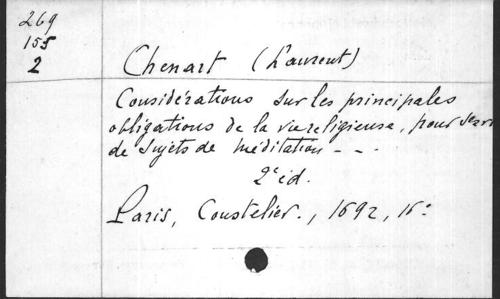 269
155
2
Chenart (Laurent)
Considérations sur les principales
obligations de la vie religieuse, pour servi
de sujets de méditation - - .
2e éd.
Paris, Coustelier., 1692, 16°